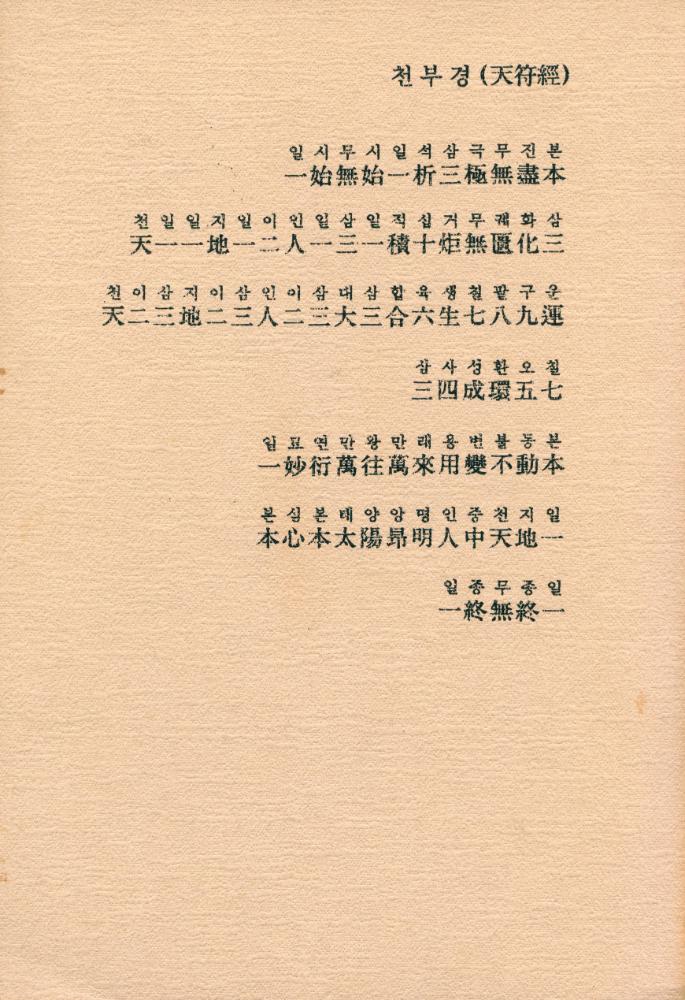 천부경(天符經)
일시무시일석삼극무진본
一始無始一析三極無盡本
천일일지일이인일삼일적십거무궤화삼
天一一地一二人一三一積十炬無匱化三
천이삼지이삼인이삼대삼합육생칠팔구운
天二三地二三人二三大三合六生七八九運
삼사성환오칠
三四成環五七
일묘연만왕만래용변불동본
一妙衍萬往萬來用變不動本
본심본태양앙명인중천지일
本心本太陽昻明人中天地一
일종무종일
一終無終一